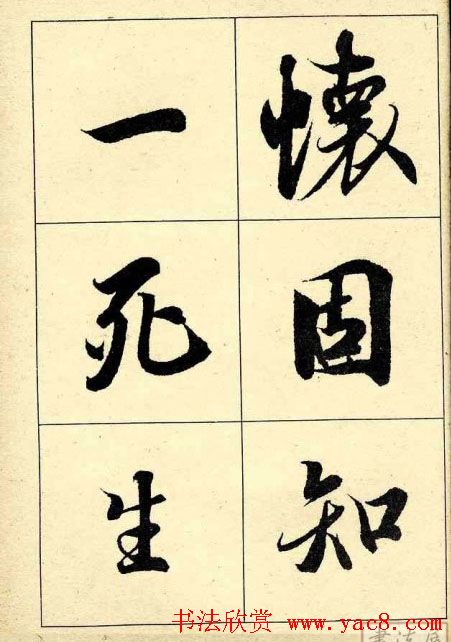 懷固知
一死生
书法欣赏 www.yac8.com